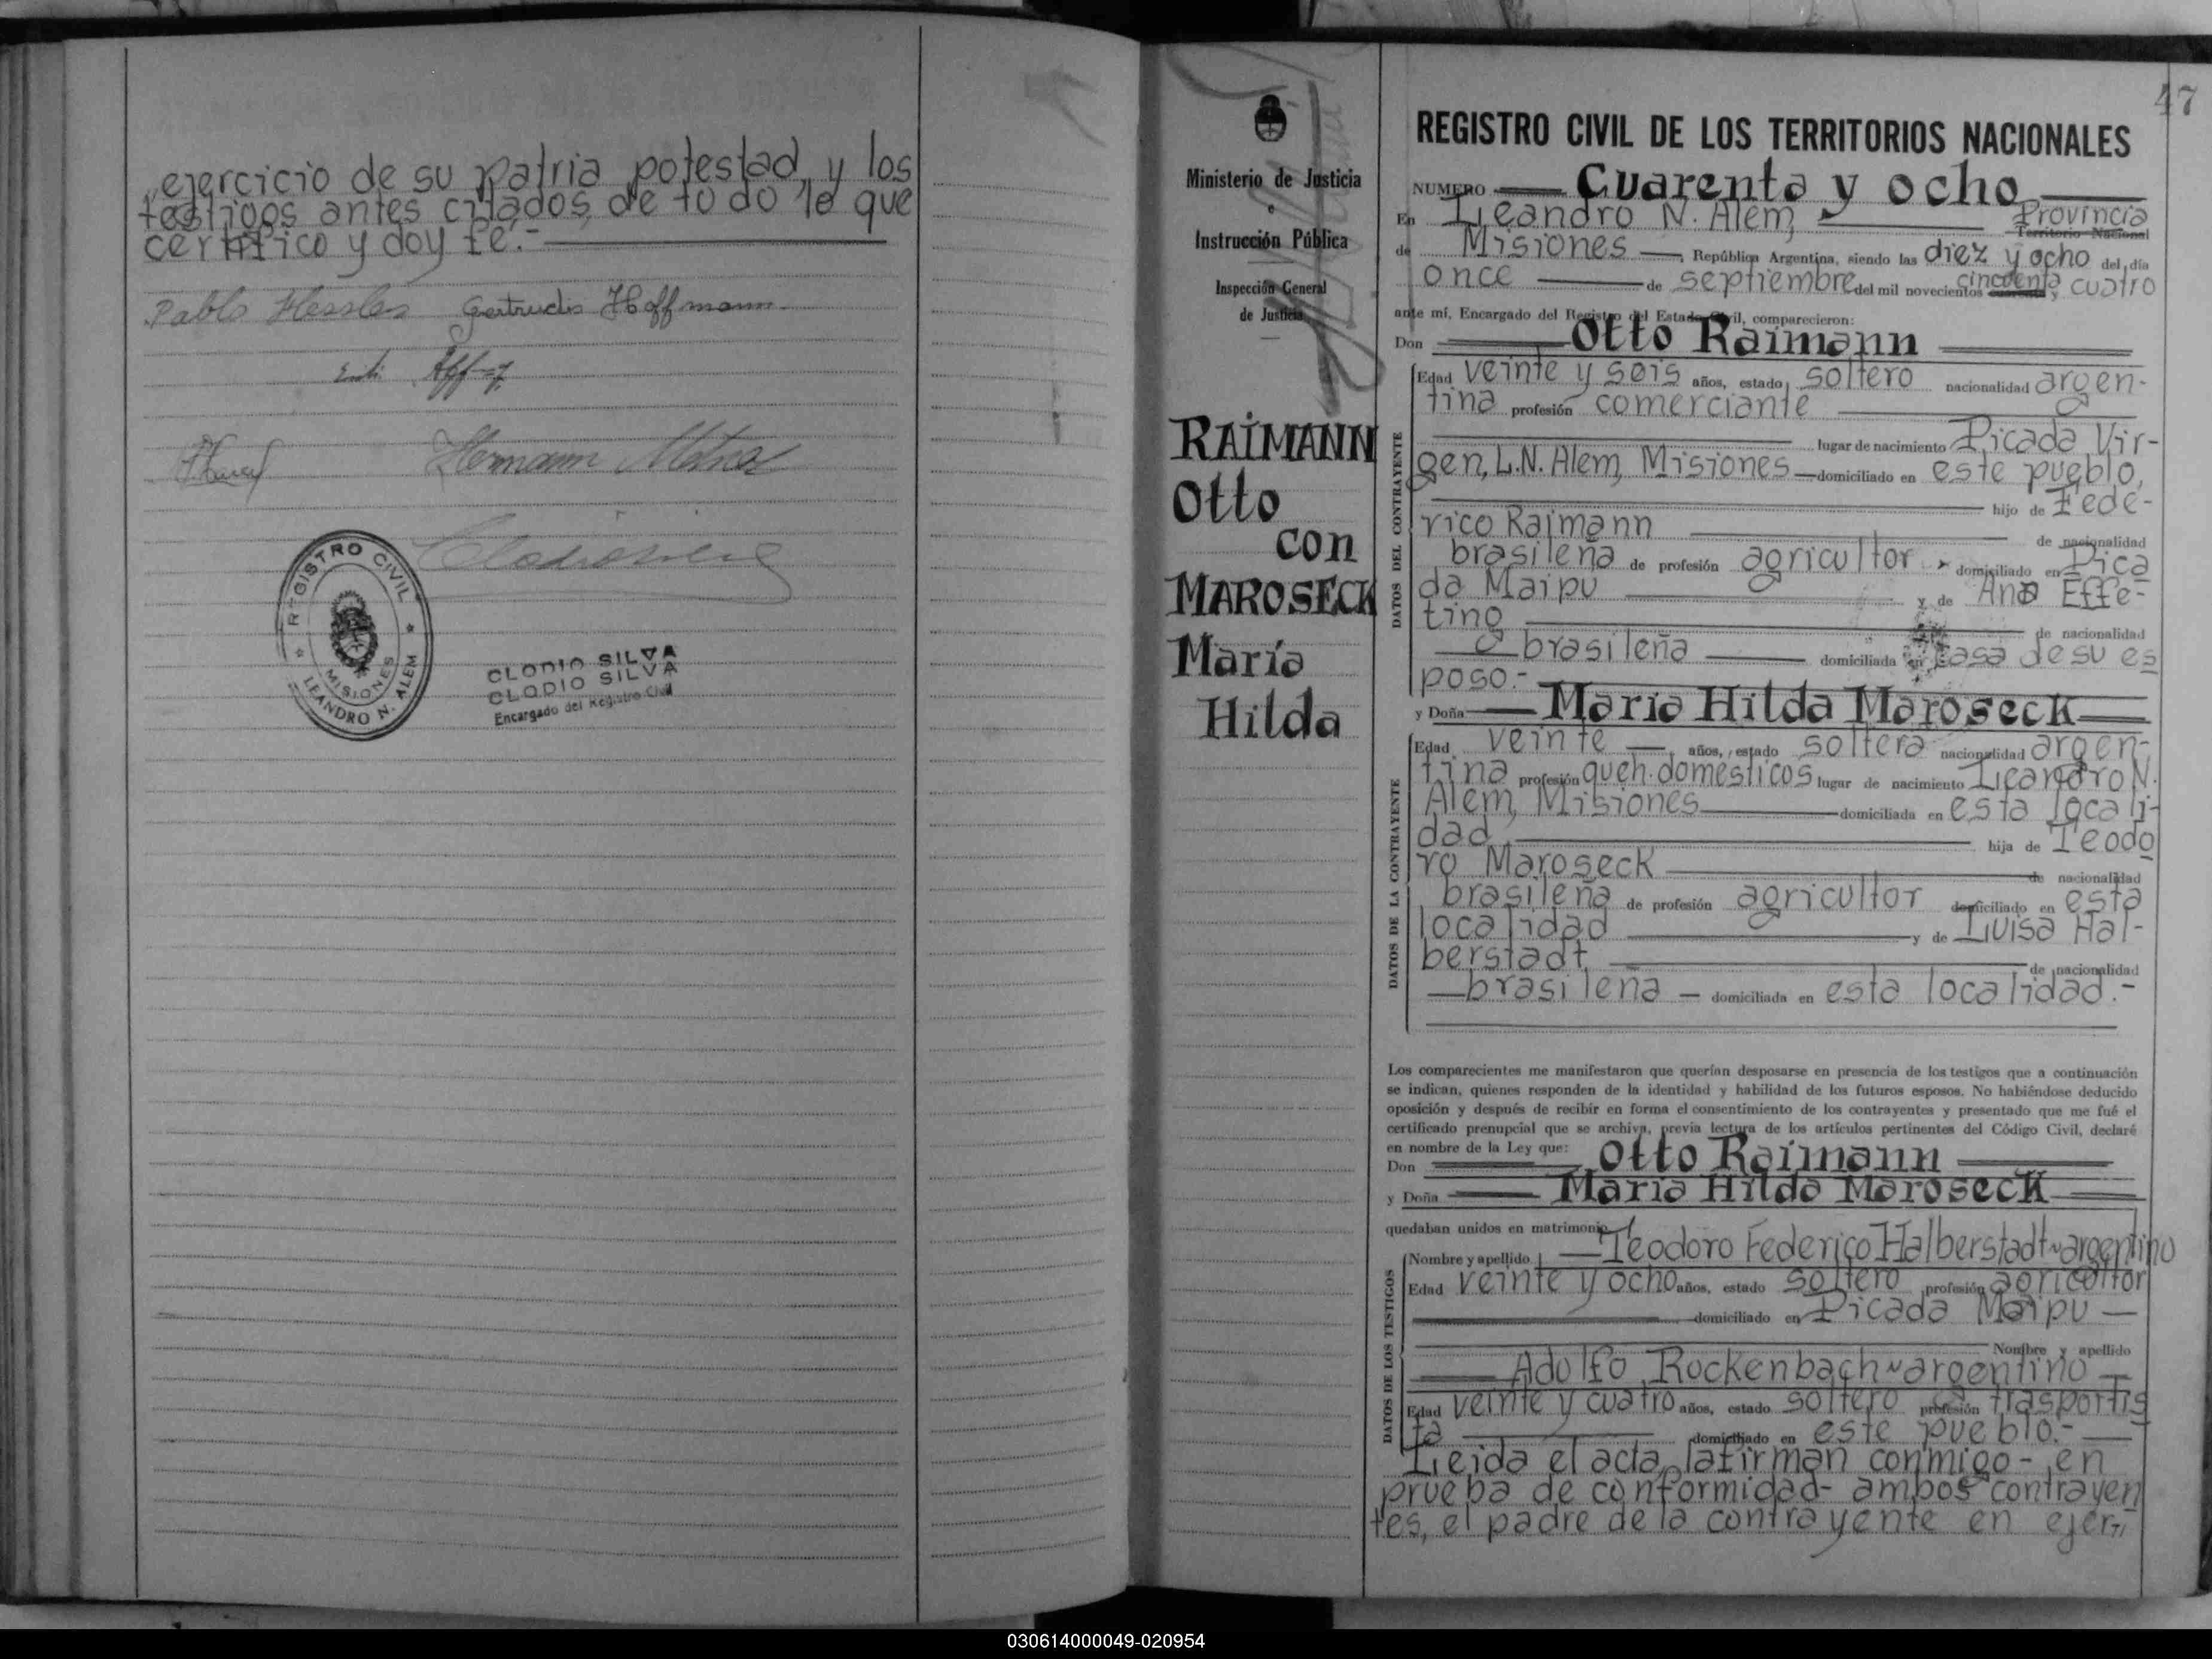 ejercicio de su patria potestad, y los
testigos antes citados, de todo lo que
certifico y doy fé.-
Pablo Hessler Gertrudis Hoffmann.
Hermann
REGISTRO CIVIL
MISIONES
LEANDRO N. ALEM
CLODIO SILVA
CLODIO SILVA
Encargado del Registro Civil
47
Ministerio de Justicia
e
Instrucción Pública
Inspección General
de Justicia
RAIMANN
Otto
con
MAROSECK
María
Hilda
REGISTRO CIVIL DE LOS TERRITORIOS NACIONALES
NUMERO Cuarenta y ocho
En Leandro N. Alem, Provincia
Territorio Nacional
de Misiones, República Argentina, siendo las diez y ocho del día
once de septiembre del mil novecientos cincuenta y cuatro
ante mí, Encargado del Registro del Estado Civil, comparecieron:
Don Otto Raimann
DATOS DEL CONTRAYENTE
Edad veinte y seis años, estado soltero nacionalidad argen-
tina profesión comerciante
lugar de nacimiento Picada Vir-
gen, L.N. Alem, Misiones domiciliado en este pueblo,
hijo de Fede-
rico Raimann
de nacionalidad
brasileña de profesión agricultor domiciliado en Pica
da Maipu y de Ana Effe-
ting
de nacionalidad
brasileña domiciliada en casa de su es
poso.-
y Doña María Hilda Maroseck
DATOS DE LA CONTRAYENTE
Edad veinte años, estado soltera nacionalidad argen-
tina profesión queh. domésticos lugar de nacimiento Leandro N.
Alem, Misiones domiciliada en esta locali-
dad, hija de Teodo
ro Maroseck
de nacionalidad
brasileña de profesión agricultor domiciliado en esta
localidad y de Luisa Hal-
berstadt
de nacionalidad
brasileña domiciliada en esta localidad.-
Los comparecientes me manifestaron que querían desposarse en presencia de los testigos que a continuación
se indican, quienes responden de la identidad y habilidad de los futuros esposos. No habiéndose deducido
oposición y después de recibir en forma el consentimiento de los contrayentes y presentado que me fué el
certificado prenupcial que se archiva, previa lectura de los artículos pertinentes del Código Civil, declaré
en nombre de la Ley que:
Don Otto Raimann
y Doña María Hilda Maroseck
quedaban unidos en matrimonio
DATOS DE LOS TESTIGOS
Nombre y apellido Teodoro Federico Halberstadt~argentino
Edad veinte y ocho años, estado soltero profesión agricultor
domiciliado en Picada Maipu
Nombre y apellido
Adolfo Rockenbach~argentino
Edad veinte y cuatro años, estado soltero profesión trasportis
ta domiciliado en este pueblo.-
Leida el acta, la firman conmigo - en
prueba de conformidad - ambos contrayen
tes, el padre de la contrayente en ejer-
030614000049-020954